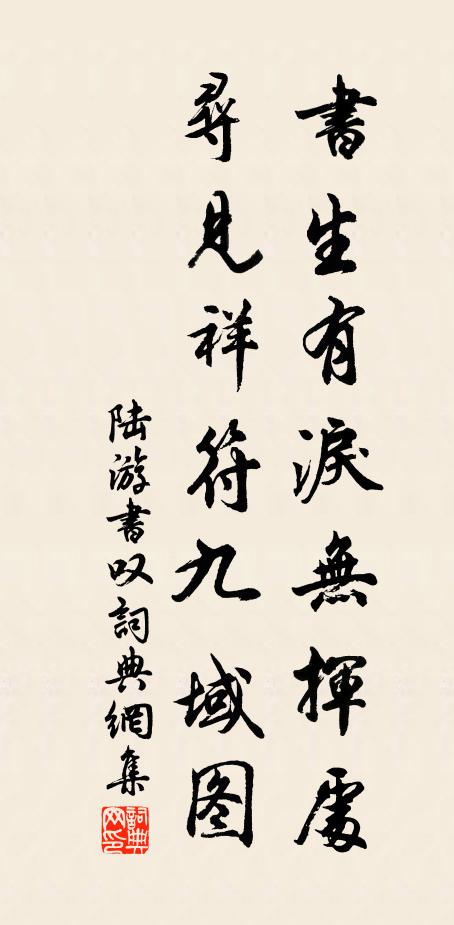 書生有淚無揮處
尋見祥符九域图
陆游書叹詞典網集
詞典网印